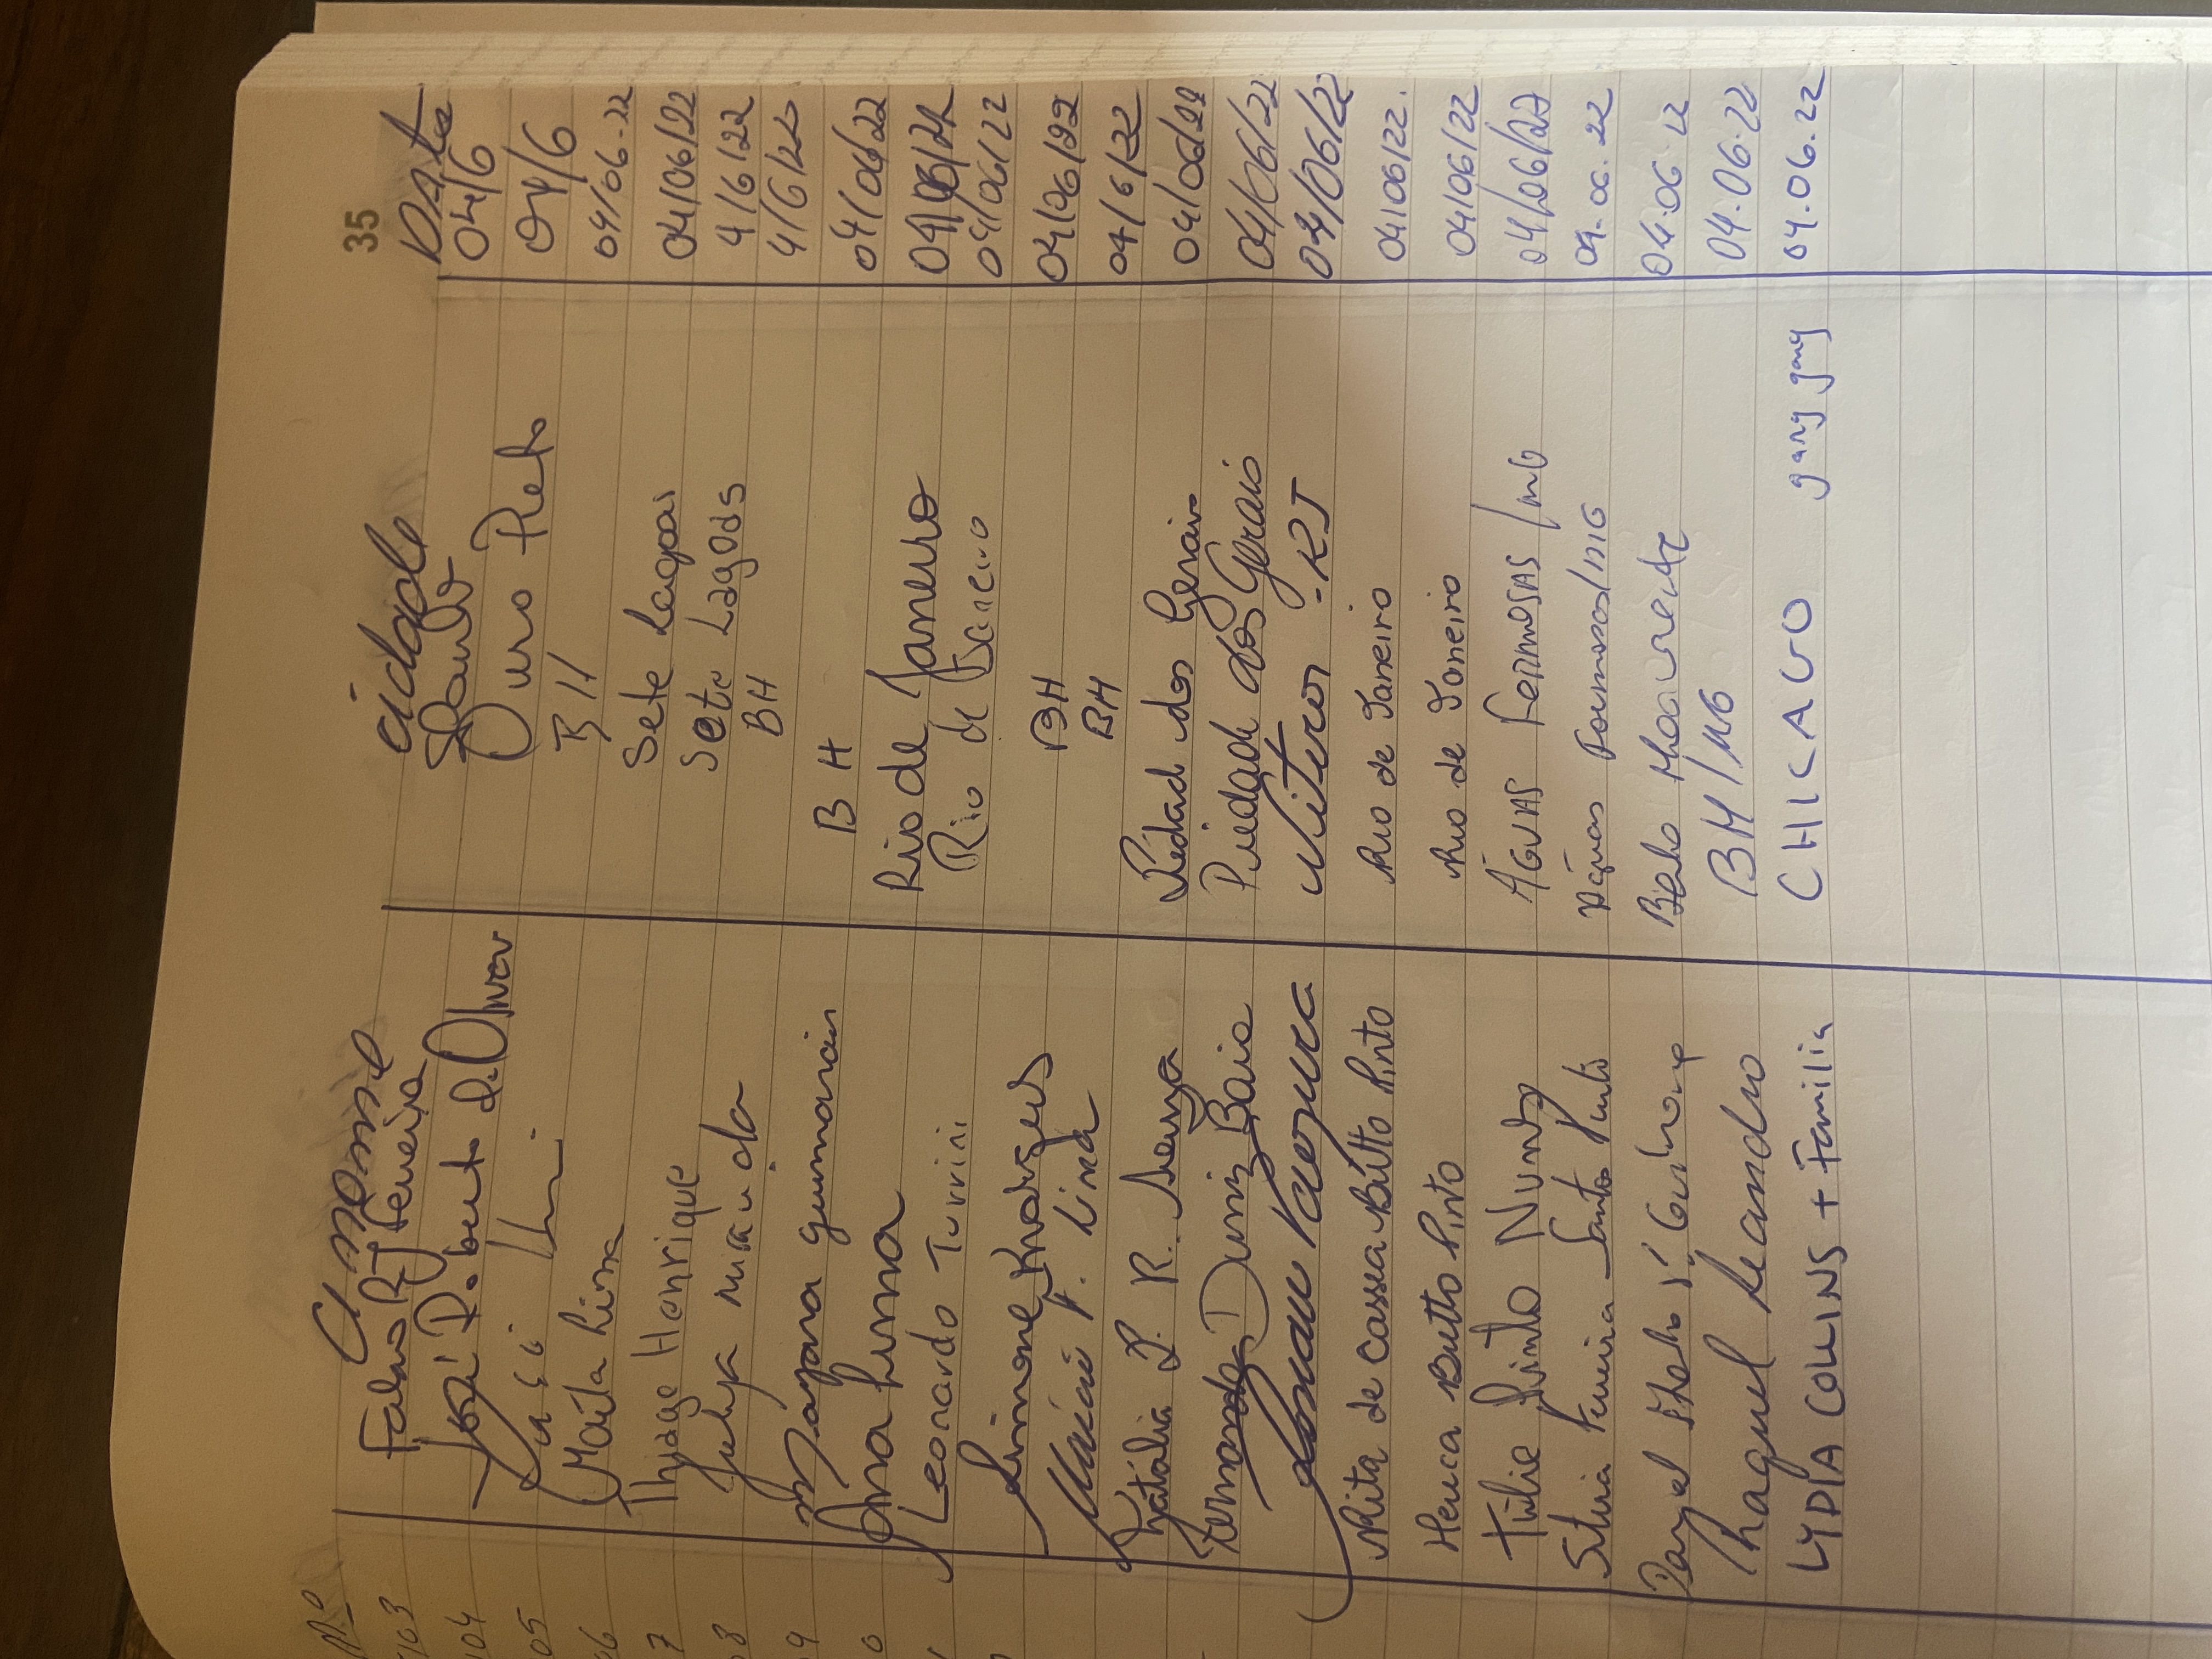 35
Nº Nome cidade Data
103 Fabio R Ferreira 04/6
104 José Roberto de Oliveir Ouro Preto 04/6
05 BH 04/06-22
06 Maíta Lima Sete Lagoas 04/06/22
7 Thiago Henrique Sete Lagoas 4/6/22
8 Julya miranda BH 4/6/22
9 Mayana guimarães BH 04/06/22
0 Ana Luma Rio de Janeiro 04/06/22
Leonardo Turrini Rio de Janeiro 04/06/22
Simone Rodrigues BH 04/06/22
F. Lima BH 04/6/22
Natália R. Souza Piedad dos Gerais 04/06/22
Fernanda Diniz Baia Piedade dos Gerais 04/06/22
Niteroi - RJ 04/06/22
Rita de Cassia Britto Pinto Rio de Janeiro 04/06/22.
Britto Pinto Rio de Janeiro 04/06/22
Túlio Pinto Nunes ÁGUAS FORMOSAS/MG 04/06/22
Ferreira Santos Águas Formosas/MG 04.06.22
Belo Horizonte 04.06.22
Raquel Leandro BH/MG 04.06.22
LYDIA COLLINS + Familia CHICAGO gang gang 04.06.22